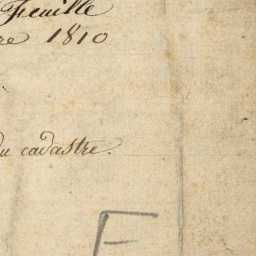 Feuille
re 1810
du cadastre.
E